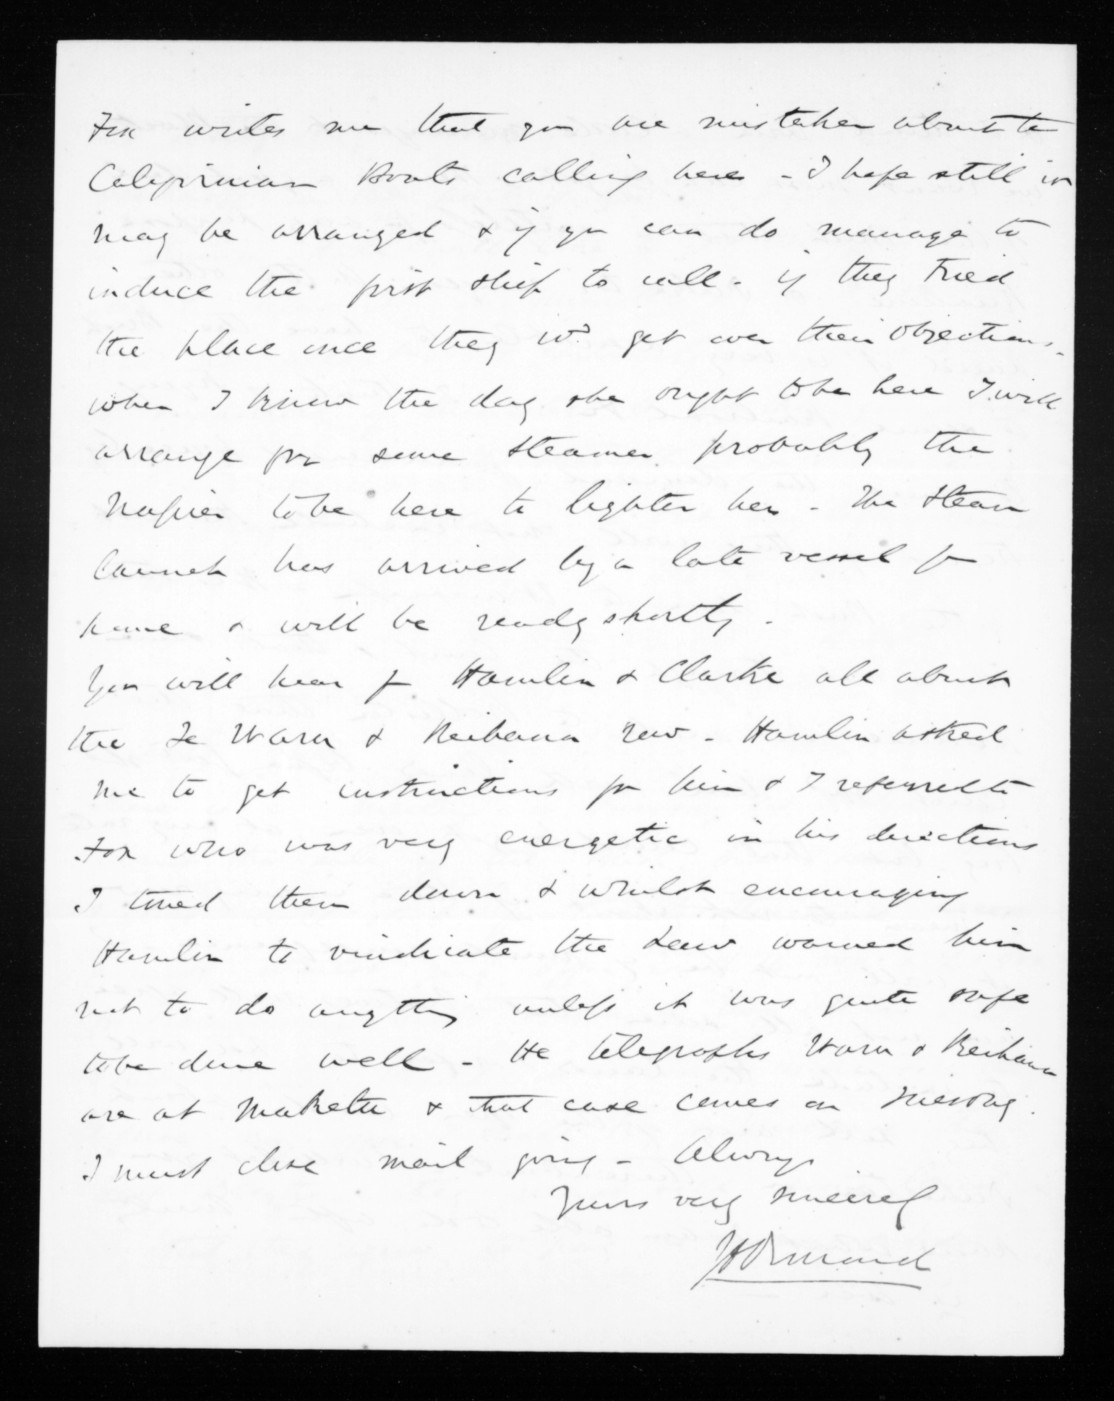 Fox writes me that you are mistaken about the
Californian Boats calling here - I hope still it
may be arranged & if you can do manage to
induce the first ship to call - if they tried
the place once they wd. get over their objections -
when I know the day she ought to be here I will
arrange for some steamer probably the
Napier to be here to lighter her - The Steam
Launch has arrived by a late vessel fm
home & will be ready shortly -
You will hear fm Hamlin & Clarke all about
the Te Waru & Reihana row - Hamlin asked
me to get instructions for him & I referred to
Fox who was very energetic in his directions
I toned them down & whilst encouraging
Hamlin to vindicate the Law warned him
not to do anything unless it was quite safe
to be done well - He telegraphs Waru & Reihana
are at Maketu & that case comes on Tuesday.
I must close mail going - Always
Yours very sincerely
JD Ormond